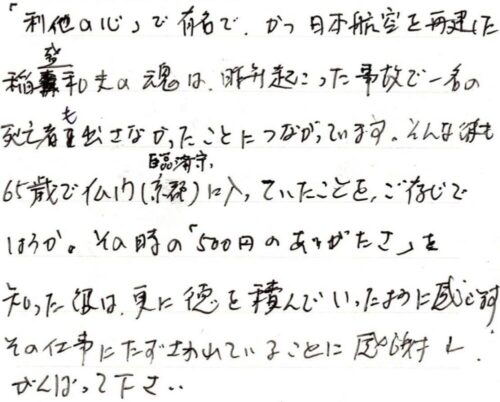 「利他の心」で有名で、かつ日本航空を再建した
稲盛和夫の魂は、昨年起こった事故で一名の
死亡者も出さなかったことにつながっています。そんな彼も
65歳で仏門(臨済宗,京都)に入っていたことを、ご存じで
しょうか。その時の「500円のありがたさ」を
知った彼は、更に徳を積んでいったように感じます
その仕事にたずさわれていることに感謝し、
がんばって下さい。